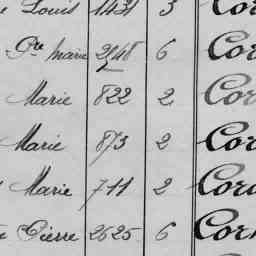 Louis 1431 3 Cor
Pre marie 2148 6 Cor
Marie 822 2 Cor
Marie 873 2 Cor
Marie 711 2 Cor
Pierre 2625 6 Cor